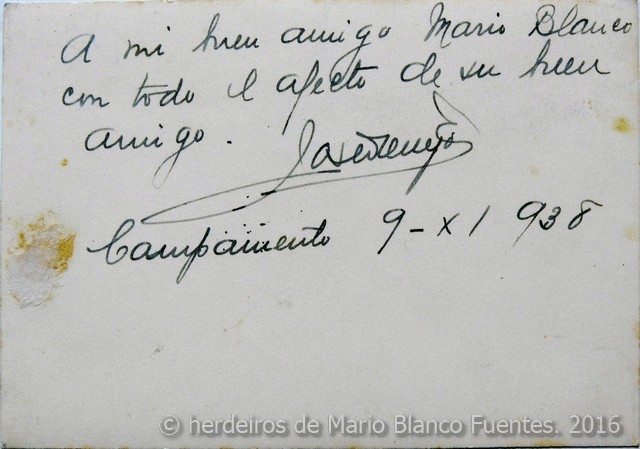 A mi buen amigo Mario Blanco
con todo el afecto de su buen
amigo.
Campamento 9-XI 938
© herdeiros de Mario Blanco Fuentes. 2016